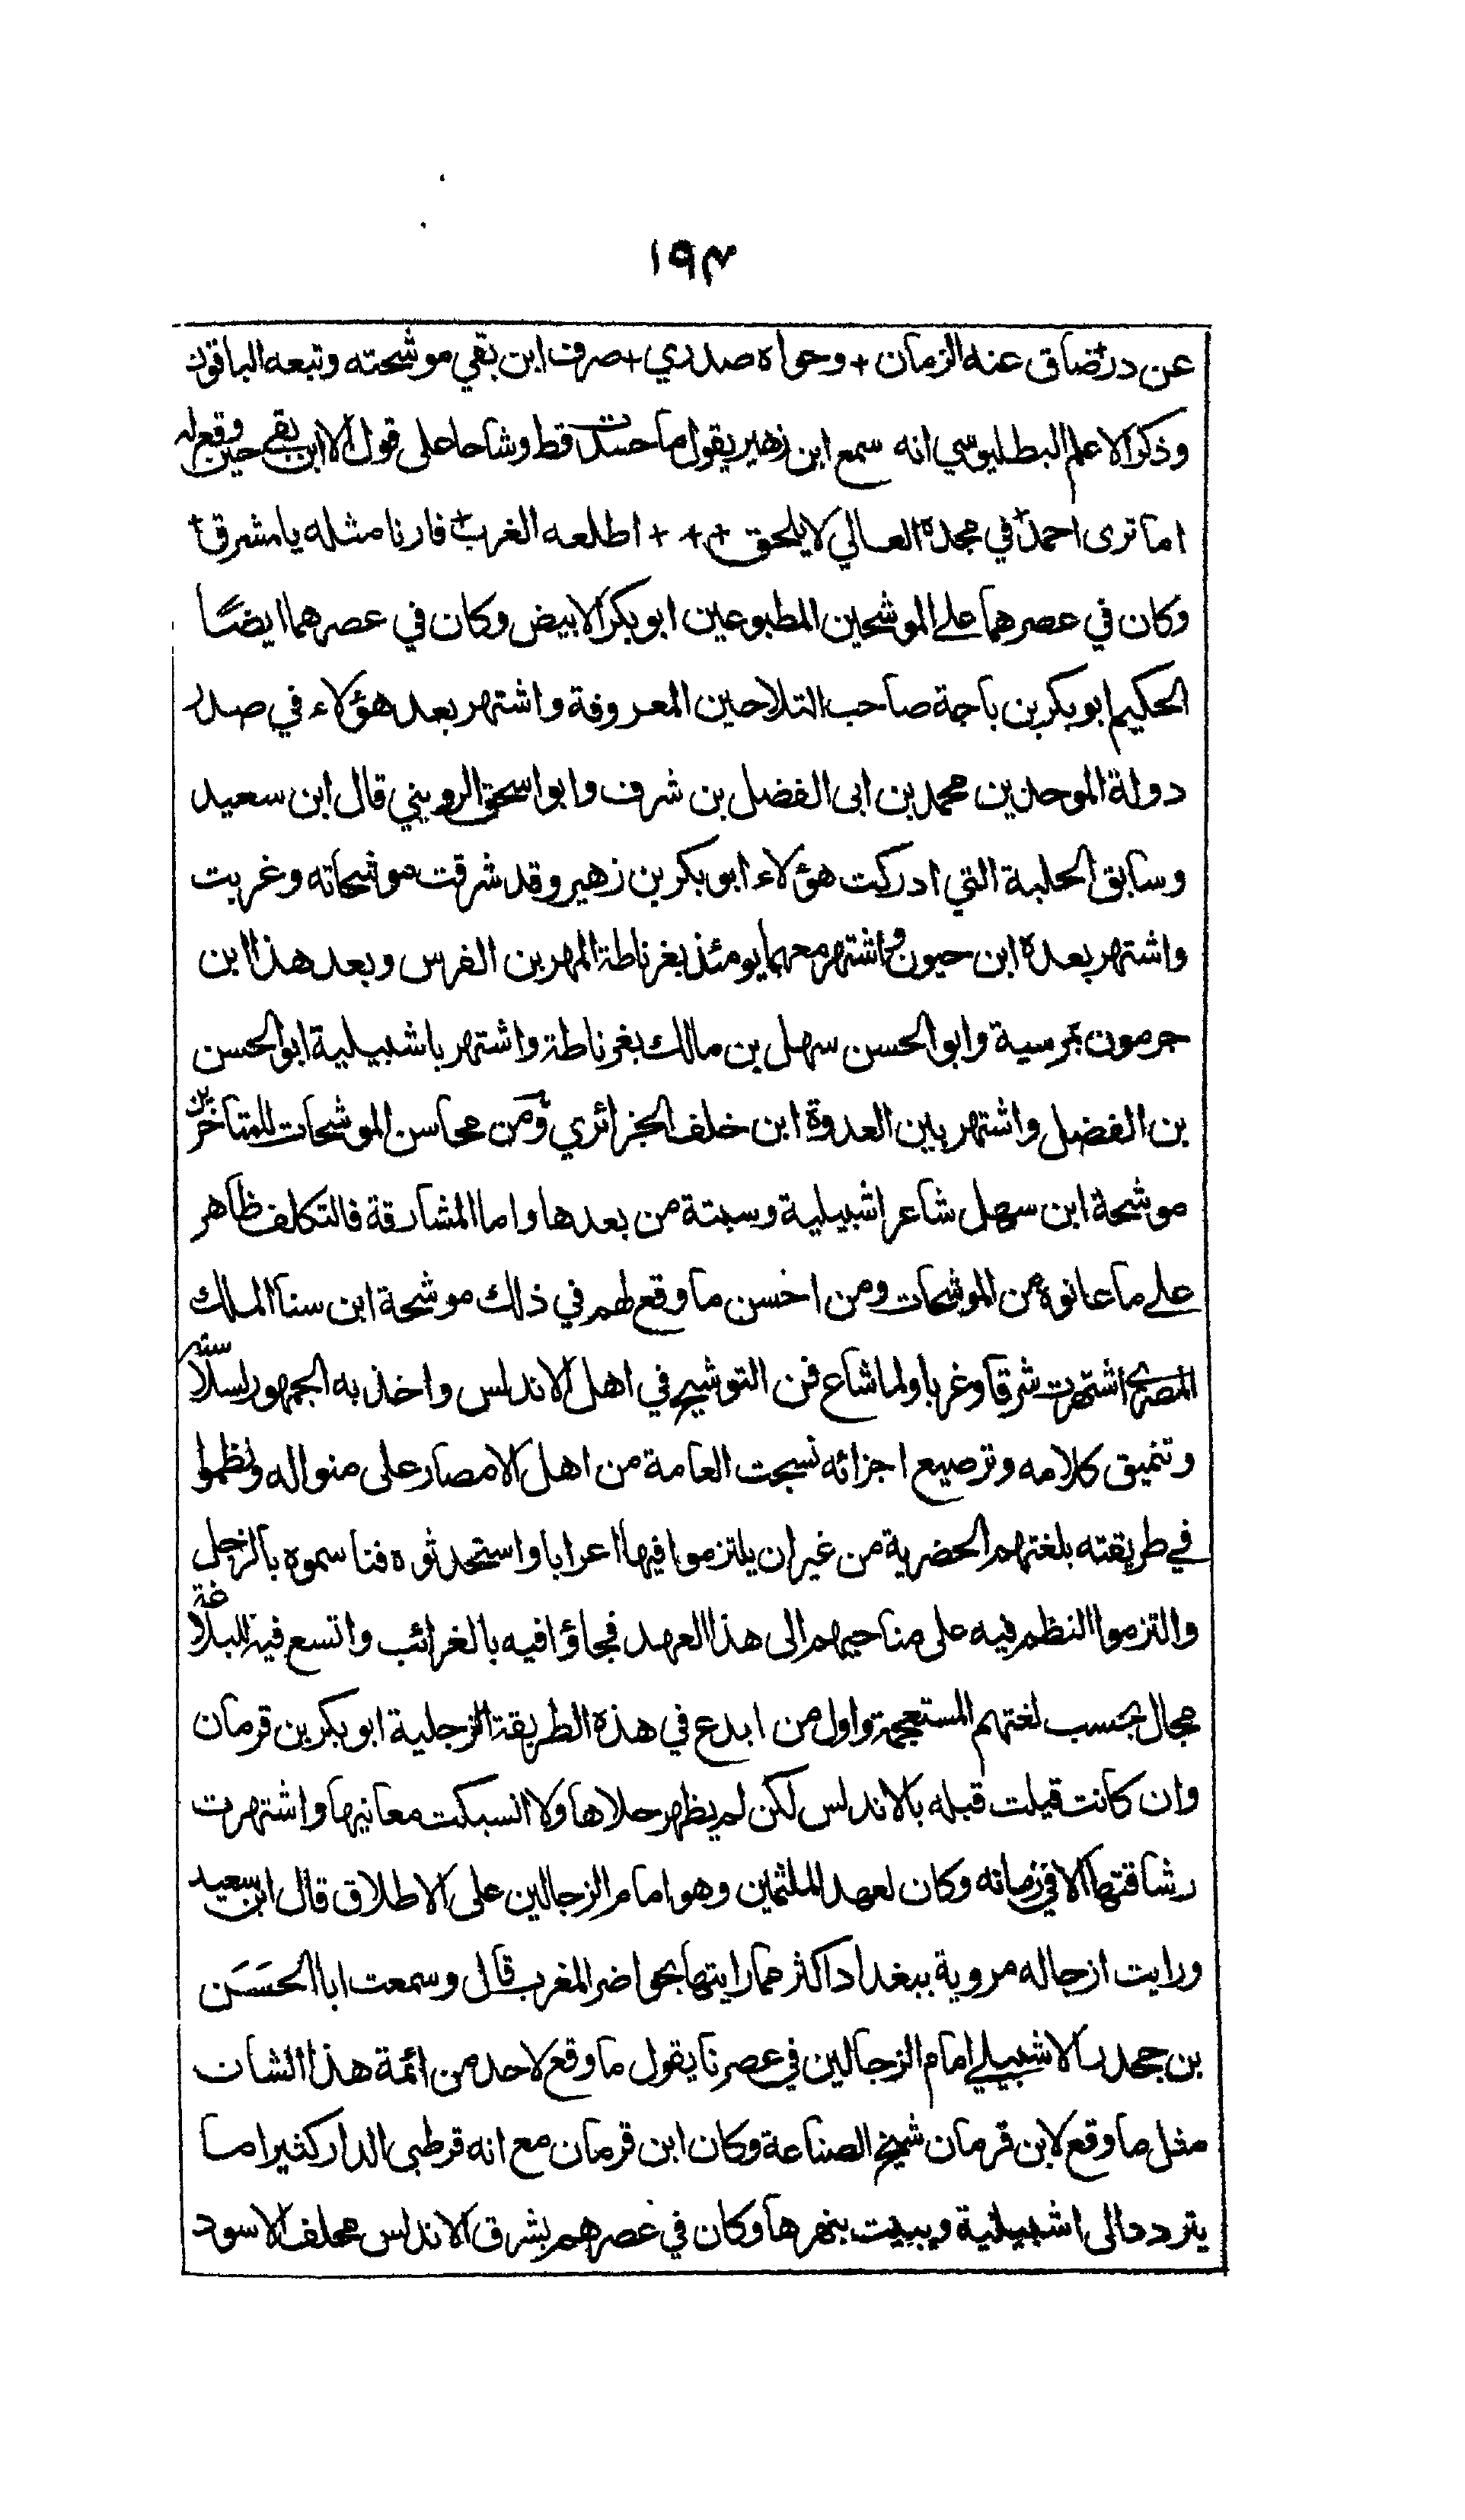 ١٩٣
عن در + ضاق عنه الزمان + وحواه صدري + صرف ابن بقي موشحته وتبعه الباقون
وذكر الاعلم البطليوسي انه سمع ابن زهير يقول ما حسدت قط وشاحا على قول الا ابن بقي حين وقع له
اما ترى احمد + في مجده العالي لا يلحق + + + اطلعه الغرب + فارنا مثله يا مشرق +
وكان في عصرهما على الموشحين المطبوعين ابو بكر الابيض وكان في عصرهما ايضًا
الحكيم ابو بكر بن باجة صاحب التلاحين المعروفة واشتهر بعد هؤلاء في صدر
دولة الموحدين محمد بن ابى الفضل بن شرف وابو اسحق الرويني قال ابن سعيد
وسابق الحلبة التي ادركت هؤلاء ابو بكر بن زهير وقد شرقت موشحاته وغربت
واشتهر بعده ابن حيون واشتهر معهما يومئذ بغرناطة المهر بن الفرس وبعد هذا ابن
جرمون بمرسية وابو الحسن سهل بن مالك بغرناطة واشتهر باشبيلية ابو الحسن
بن الفضل واشتهر بين العدوة ابن خلف الجزائري ومن محاسن الموشحات للمتاخرين
موشحة ابن سهل شاعر اشبيلية وسبتة من بعدها واما المشارقة فالتكلف ظاهر
على ما عانوه من الموشحات ومن احسن ما وقع لهم في ذلك موشحة ابن سنا الملك
المصري اشتهرت شرقا وغربا ولما شاع فن التوشيح في اهل الاندلس واخذ به الجمهور لسلاسته
وتنميق كلامه وترصيع اجزائه نسجت العامة من اهل الامصار على منواله ونظموا
في طريقته بلغتهم الحضرية من غير ان يلتزموا فيها اعرابا واستحدثوه فنا سموه بالزجل
والتزموا النظم فيه على مناحيهم الى هذا العهد فجاؤا فيه بالغرائب واتسع فيه للبلاغة
مجال بحسب لغتهم المستعجمة واول من ابدع في هذه الطريقة الزجلية ابو بكر بن قرمان
وان كانت قيلت قبله بالاندلس لكن لم يظهر حلاها ولا انسبكت معانيها واشتهرت
رشاقتها الا في زمانه وكان لعهد الملثمين وهو امام الزجالين على الاطلاق قال ابن سعيد
ورايت ازجاله مروية ببغداد اكثر مما رايتها بحواضر المغرب قال وسمعت ابا الحَسَن
بن جحدر الاشبيلي امام الزجالين في عصرنا يقول ما وقع لاحد من ائمة هذا الشان
مثل ما وقع لابن قرمان شيخ الصناعة وكان ابن قرمان مع انه قرطبى الدار كثيرا ما
يتردد الى اشبيلية ويبيت بنهرها وكان في عصرهم بشرق الاندلس محلف الاسود